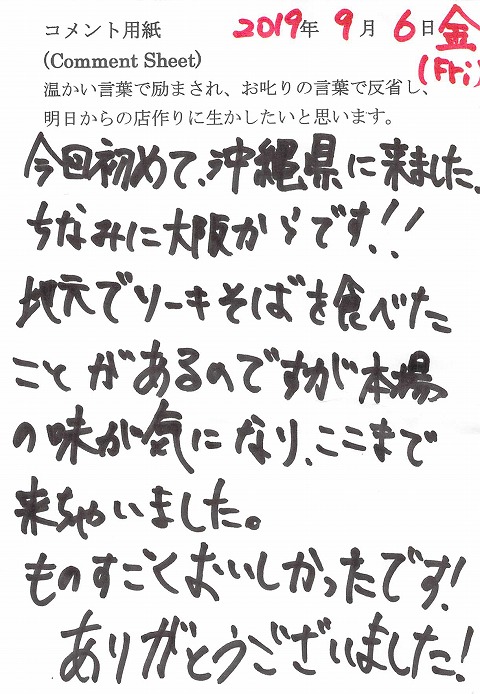 コメント用紙 2019年 9月 6日 金
(Comment Sheet) (Fri)
温かい言葉で励まされ、お叱りの言葉で反省し、
明日からの店作りに生かしたいと思います。
今回初めて、沖縄県に来ました、
ちなみに大阪からです!!
地元でソーキそばを食べた
ことがあるのですが本場
の味が気になり、ここまで
来ちゃいました。
ものすごくおいしかったです!
ありがとうございました!